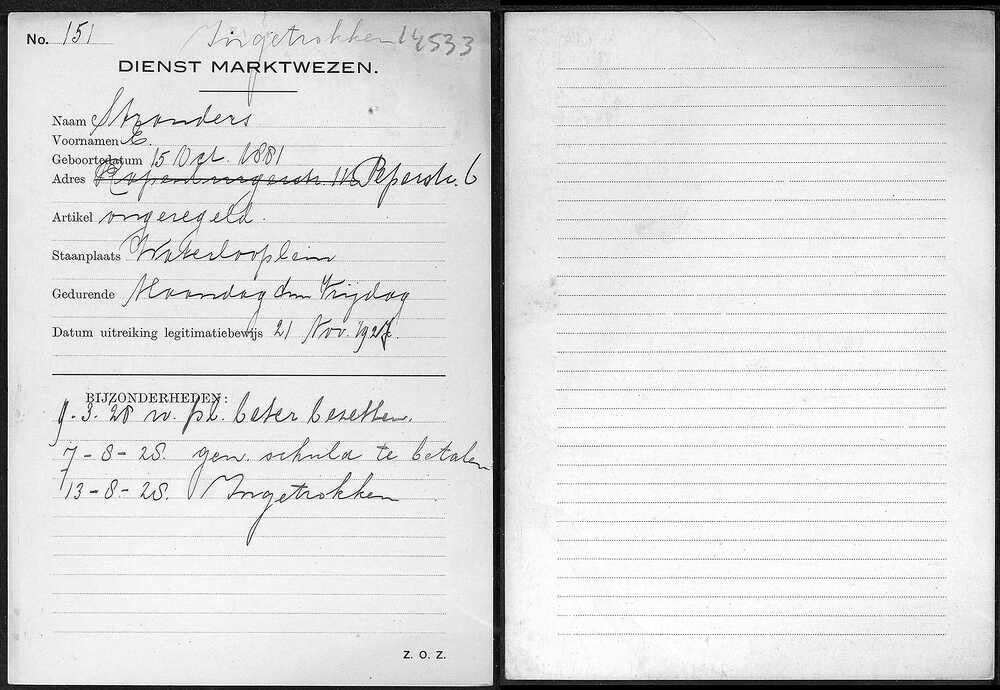 No. 151 Ingetrokken 14533
DIENST MARKTWEZEN.
Naam Stranders
Voornamen E.
Geboortedatum 15 Oct. 1881
Adres Rapenburgerstr. 112 Peperstr. 6
Artikel ongeregeld.
Staanplaats Waterlooplein
Gedurende Maandag t/m Vrijdag
Datum uitreiking legitimatiebewijs 21 Nov. 1927.
BIJZONDERHEDEN:
9-3-28 w. pl. beter bezetten.
7-8-28. gew. schuld te betalen
13-8-28. Ingetrokken
Z. O. Z.